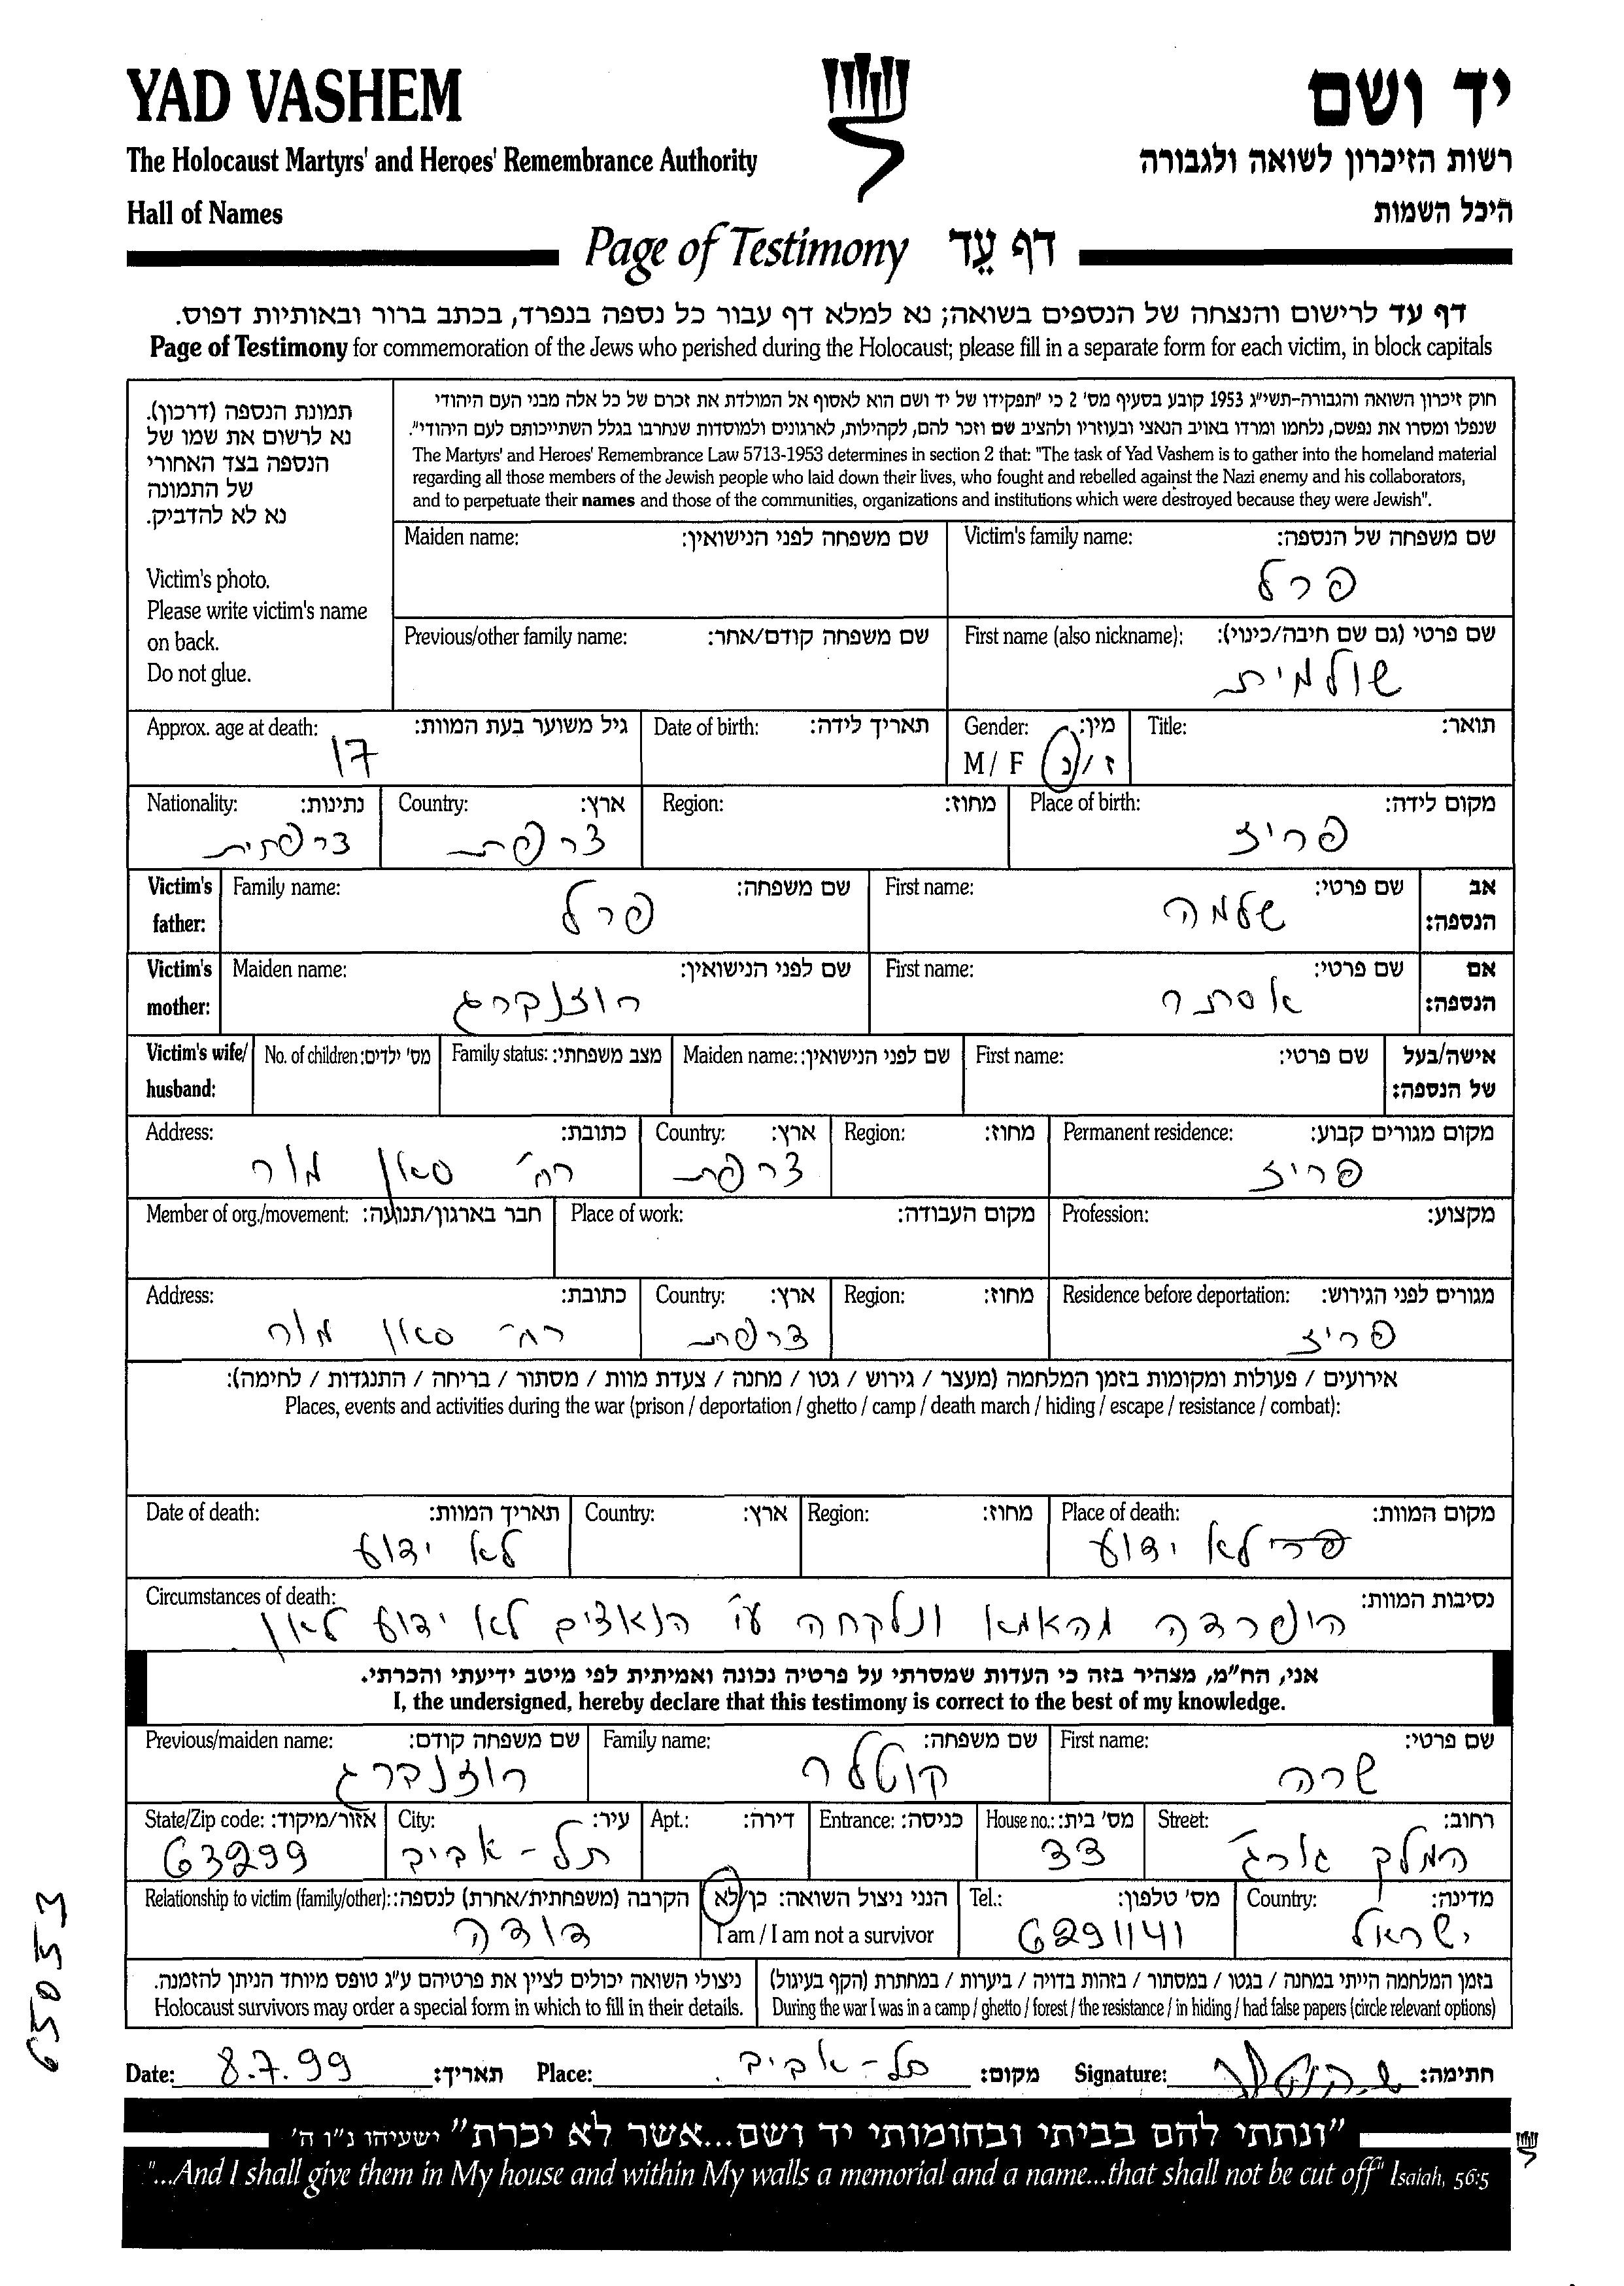 YAD VASHEM
יד ושם
The Holocaust Martyrs' and Heroes' Remembrance Authority
רשות הזיכרון לשואה ולגבורה
Hall of Names
היכל השמות
Page of Testimony דף עֵד
דף עד לרישום והנצחה של הנספים בשואה; נא למלא דף עבור כל נספה בנפרד, בכתב ברור ובאותיות דפוס.
Page of Testimony for commemoration of the Jews who perished during the Holocaust; please fill in a separate form for each victim, in block capitals
תמונת הנספה (דרכון).
נא לרשום את שמו של
הנספה בצד האחורי
של התמונה
נא לא להדביק.
Victim's photo.
Please write victim's name
on back.
Do not glue.
חוק זיכרון השואה והגבורה-תשי"ג 1953 קובע בסעיף מס' 2 כי "תפקידו של יד ושם הוא לאסוף אל המולדת את זכרם של כל אלה מבני העם היהודי
שנפלו ומסרו את נפשם, נלחמו ומרדו באויב הנאצי ובעוזריו ולהציב שם וזכר להם, לקהילות, לארגונים ולמוסדות שנחרבו בגלל השתייכותם לעם היהודי".
The Martyrs' and Heroes' Remembrance Law 5713-1953 determines in section 2 that: "The task of Yad Vashem is to gather into the homeland material
regarding all those members of the Jewish people who laid down their lives, who fought and rebelled against the Nazi enemy and his collaborators,
and to perpetuate their names and those of the communities, organizations and institutions which were destroyed because they were Jewish".
Victim's family name: שם משפחה של הנספה:
פרל
Maiden name: שם משפחה לפני הנישואין:
First name (also nickname): שם פרטי (גם שם חיבה/כינוי):
שולמית
Previous/other family name: שם משפחה קודם/אחר:
Title: תואר:
Gender: מין:
M / F ז / נ
Date of birth: תאריך לידה:
Approx. age at death: גיל משוער בעת המוות:
17
Place of birth: מקום לידה:
פריז
Region: מחוז:
Country: ארץ:
צרפת
Nationality: נתינות:
צרפתית
Victim's father: אב הנספה:
First name: שם פרטי:
שלמה
Family name: שם משפחה:
פרל
Victim's mother: אם הנספה:
First name: שם פרטי:
אסתר
Maiden name: שם לפני הנישואין:
רוזנברג
Victim's wife/ husband: אישה/בעל של הנספה:
First name: שם פרטי:
Maiden name: שם לפני הנישואין:
Family status: מצב משפחתי:
No. of children: מס' ילדים:
Permanent residence: מקום מגורים קבוע:
פריז
Region: מחוז:
Country: ארץ:
צרפת
Address: כתובת:
רח' סאן מור
Profession: מקצוע:
Place of work: מקום העבודה:
Member of org./movement: חבר בארגון/תנועה:
Residence before deportation: מגורים לפני הגירוש:
פריז
Region: מחוז:
Country: ארץ:
צרפת
Address: כתובת:
רח' סאן מור
אירועים / פעולות ומקומות בזמן המלחמה (מעצר / גירוש / גטו / מחנה / צעדת מוות / מסתור / בריחה / התנגדות / לחימה):
Places, events and activities during the war (prison / deportation / ghetto / camp / death march / hiding / escape / resistance / combat):
Place of death: מקום המוות:
לא ידוע
Region: מחוז:
Country: ארץ:
Date of death: תאריך המוות:
לא ידוע
Circumstances of death: נסיבות המוות:
הופרדה מהאמא ונלקחה ע"י הנאצים לא ידוע לאן.
אני, הח"מ, מצהיר בזה כי העדות שמסרתי על פרטיה נכונה ואמיתית לפי מיטב ידיעתי והכרתי.
I, the undersigned, hereby declare that this testimony is correct to the best of my knowledge.
First name: שם פרטי:
שרה
Family name: שם משפחה:
קוטלר
Previous/maiden name: שם משפחה קודם:
רוזנברג
Street: רחוב:
המלך גורג'
House no.: מס' בית:
33
Entrance: כניסה:
Apt.: דירה:
City: עיר:
תל-אביב
State/Zip code: אזור/מיקוד:
63299
Country: מדינה:
ישראל
Tel.: מס' טלפון:
6291141
הנני ניצול השואה: כן/לא
I am / I am not a survivor
Relationship to victim (family/other): הקרבה (משפחתית/אחרת) לנספה:
דודה
בזמן המלחמה הייתי במחנה / בגטו / במסתור / בזהות בדויה / ביערות / במחתרת (הקף בעיגול)
During the war I was in a camp / ghetto / forest / the resistance / in hiding / had false papers (circle relevant options)
ניצולי השואה יכולים לציין את פרטיהם ע"ג טופס מיוחד הניתן להזמנה.
Holocaust survivors may order a special form in which to fill in their details.
Date: 8.7.99 תאריך: Place: תל-אביב. מקום: Signature: ש. קוטלר חתימה:
"ונתתי להם בביתי ובחומותי יד ושם...אשר לא יכרת" ישעיהו נ"ו ה'
"...And I shall give them in My house and within My walls a memorial and a name...that shall not be cut off" Isaiah, 56:5
65053